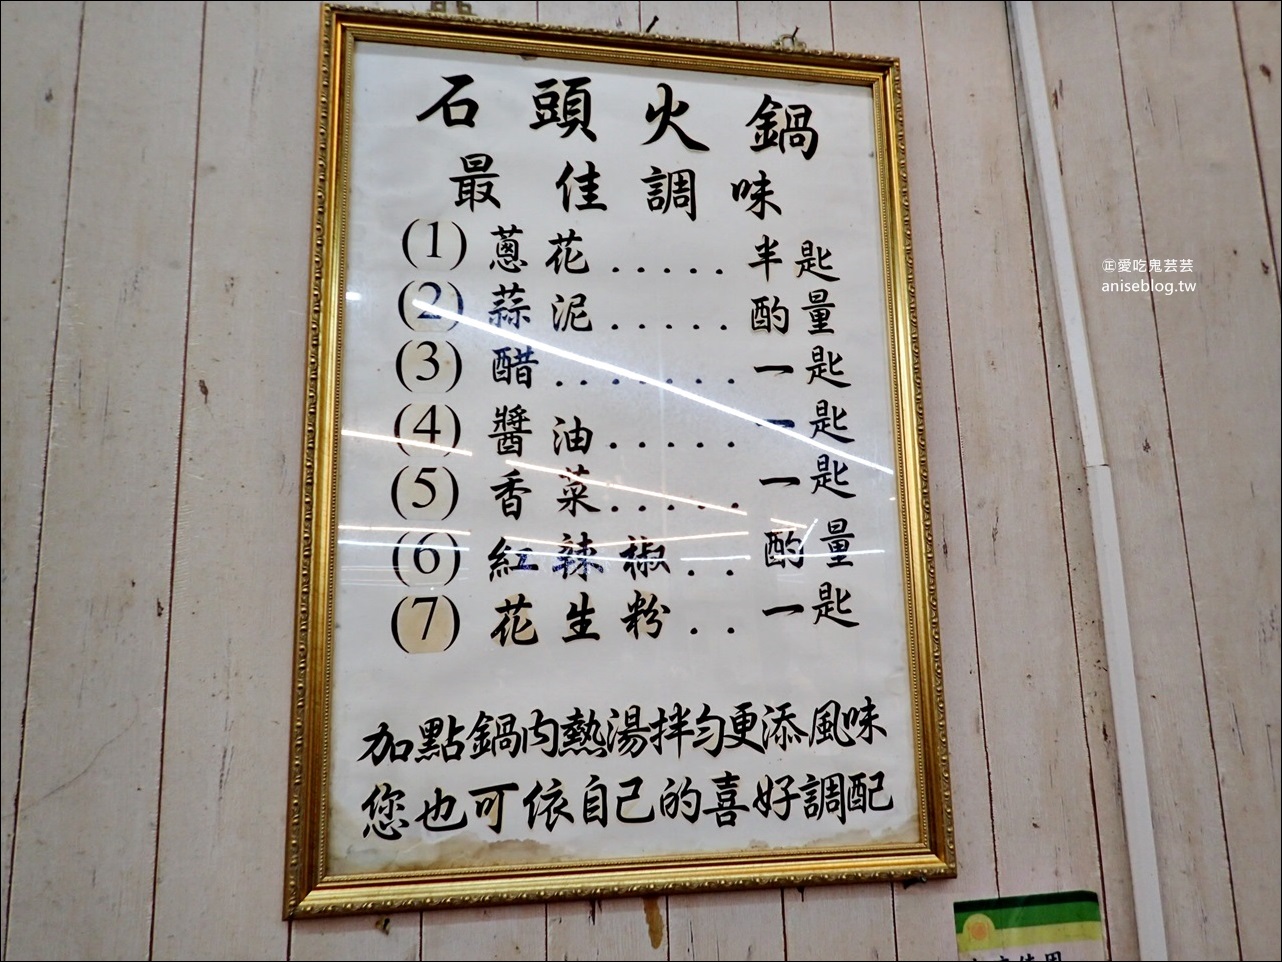 石頭火鍋
最佳調味
(1) 蔥花..... 半匙
(2) 蒜泥..... 酌量
(3) 醋....... 一匙
(4) 醬油..... 一匙
(5) 香菜..... 一匙
(6) 紅辣椒.. 酌量
(7) 花生粉.. 一匙
加點鍋內熱湯拌勻更添風味
您也可依自己的喜好調配
㊣愛吃鬼芸芸
aniseblog.tw
使用